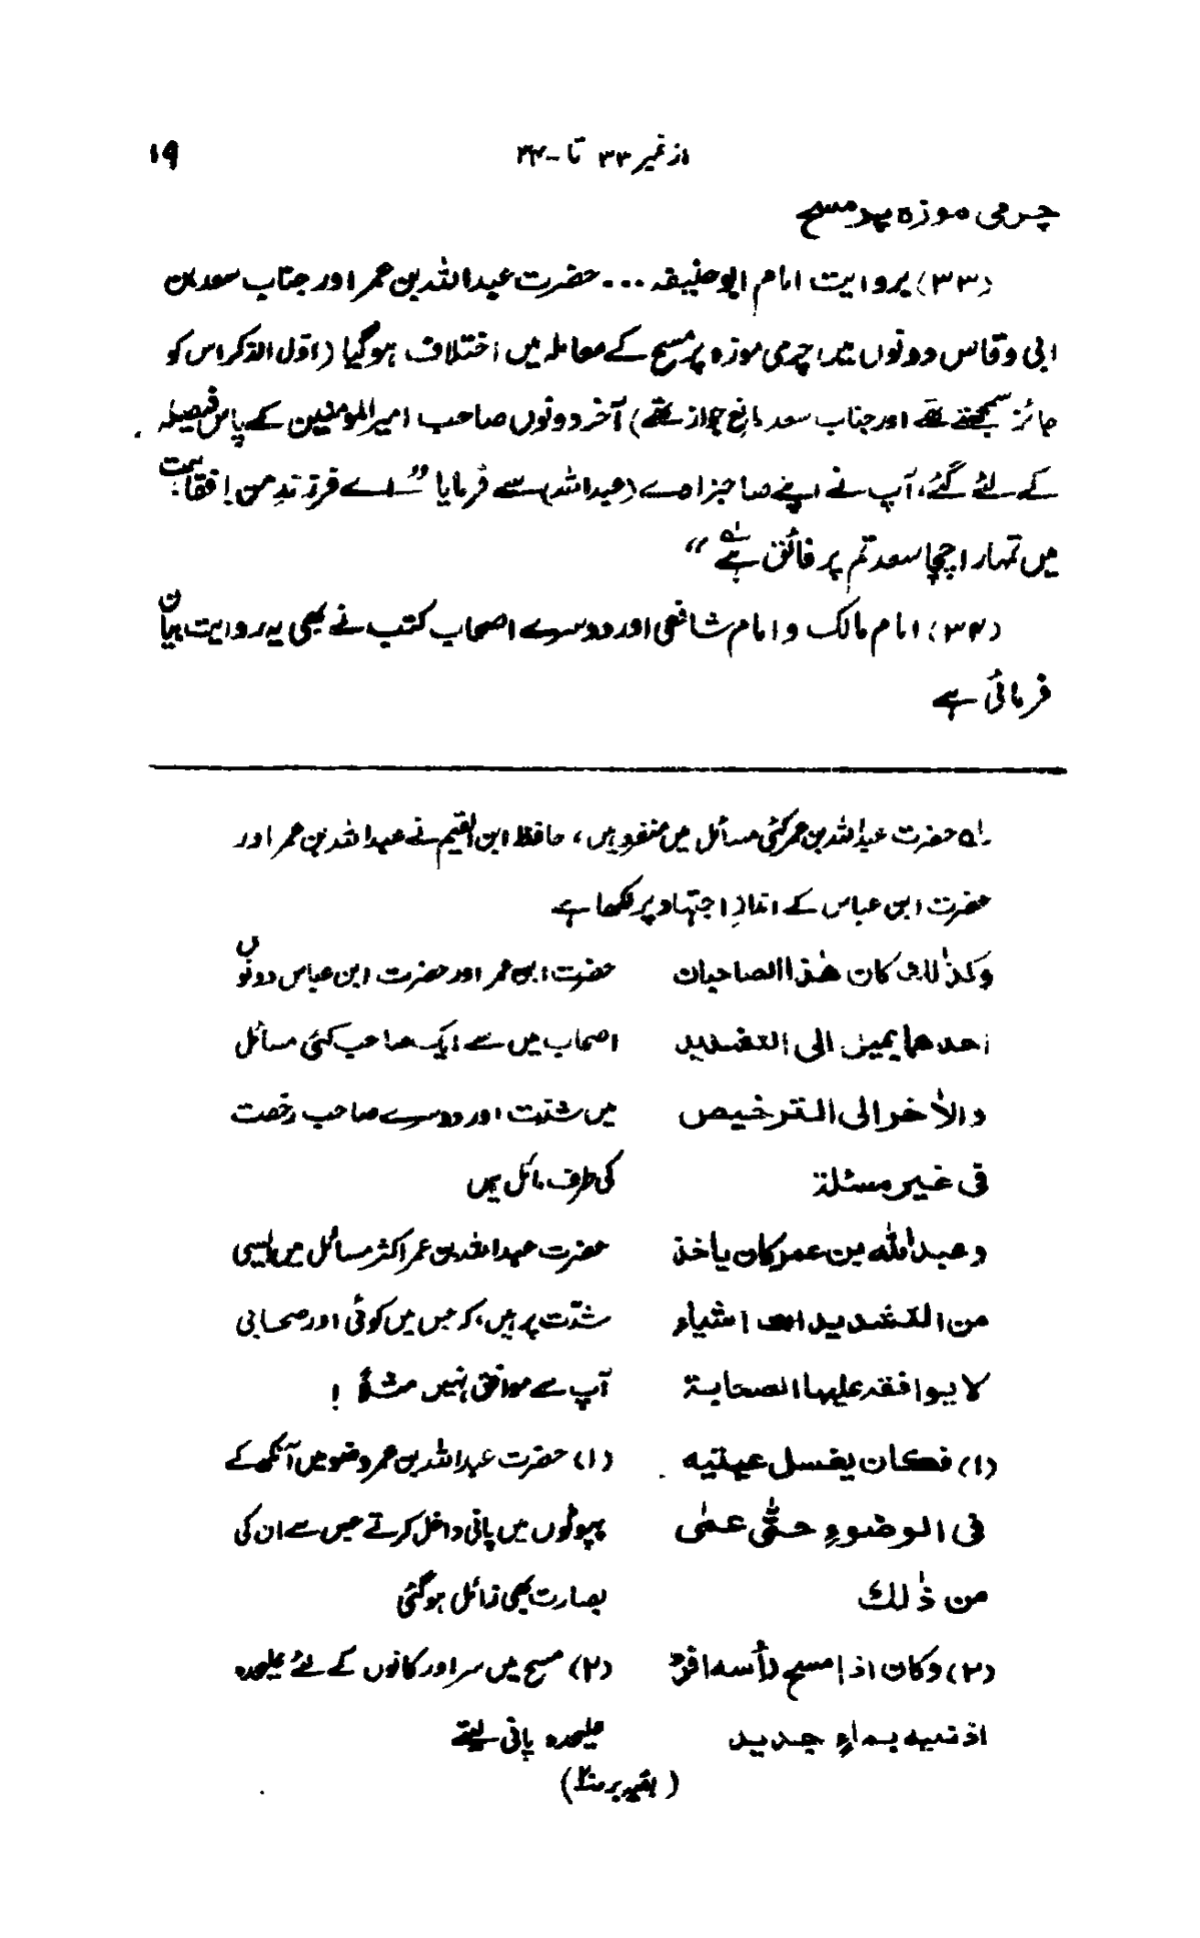 ۱۹
از نمبر ۳۳ تا - ۳۴
چرمی موزہ پر مسح
(۳۳) بروایت امام ابوحنیفہ ... حضرت عبداللہ بن عمر اور جناب سعد بن
ابی وقاس دونوں میں چرمی موزہ پر مسح کے معاملہ میں اختلاف ہوگیا (اوّل الذکر اس کو
جائز سمجھتے تھے اور جناب سعد مانع جواز تھے) آخر دونوں صاحب امیرالمومنین کے پاس فیصلہ
کے لئے گئے، آپ نے اپنے صاحبزادے (عبداللہ) سے فرمایا ”اے فرزندِ من! فقاہت
میں تمہارا چچا سعد تم پر فائق ہے لہ “
(۳۴) امام مالک و امام شافعی اور دوسرے اصحاب کتب نے بھی یہ روایت بیان
فرمائی ہے
لہ حضرت عبداللہ بن عمر کئی مسائل میں منفرد ہیں، حافظ ابن القیم نے عبداللہ بن عمر اور
حضرت ابن عباس کے اندازِ اجتہاد پر لکھا ہے
وکذٰلک کان ھٰذا الصاحبان حضرت ابن عمر اور حضرت ابن عباس دونوں
احدھما یمیل الی التشدید اصحاب میں سے ایک صاحب کئی مسائل
والاٰخر الی الترخیص میں شدّت اور دوسرے صاحب رخصت
فی غیر مسئلۃ کی طرف مائل ہیں
وعبداللہ بن عمر کان یاخذ حضرت عبداللہ بن عمر اکثر مسائل میں ایسی
من التشدید اشیاء شدّت پر ہیں، کہ جس میں کوئی اور صحابی
لا یوافقہ علیھا الصحابۃ آپ سے موافق نہیں مثلاً !
(۱) فکان یغسل عینیہ (۱) حضرت عبداللہ بن عمر وضو میں آنکھ کے
فی الوضوءِ حتّٰی عمٰی پپوٹوں میں پانی داخل کرتے جس سے ان کی
من ذٰلک بصارت بھی زائل ہوگئی
(۲) وکان اذا مسح رأسہ افرد (۲) مسح میں سر اور کانوں کے لئے علیحدہ
اذنیہ بماءٍ جدید علیحدہ پانی لیتے
(بقیہ بر صـ۲۰)